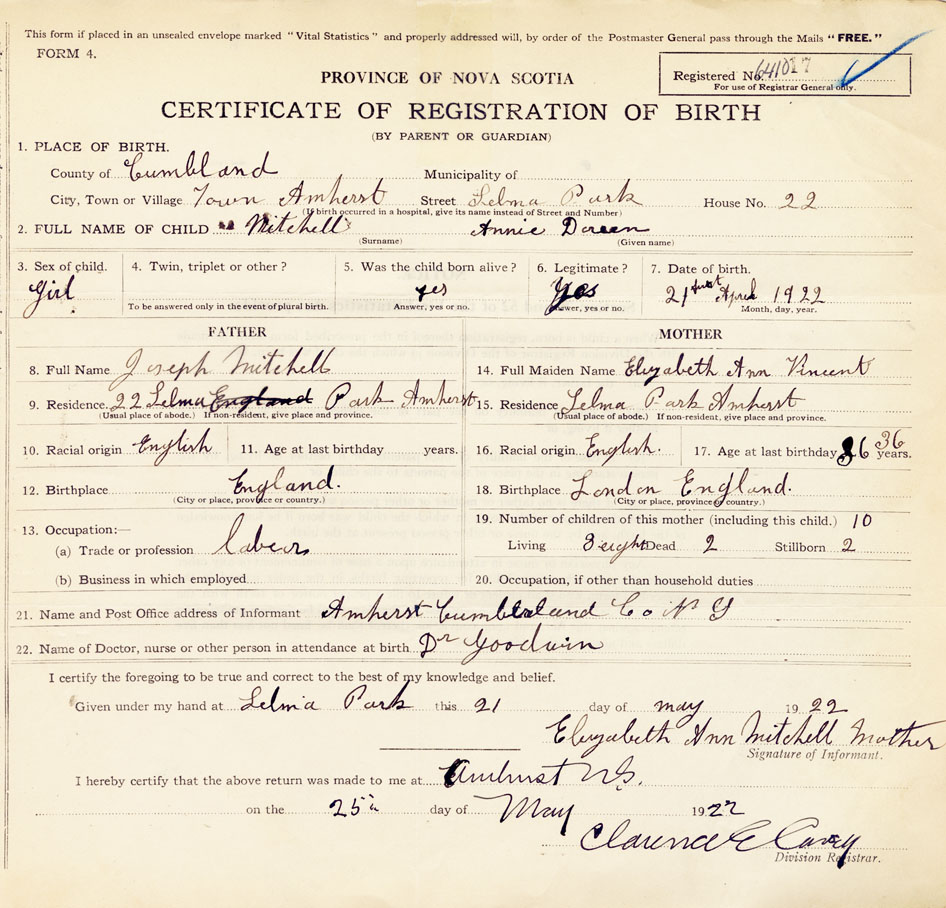 This form if placed in an unsealed envelope marked "Vital Statistics" and properly addressed will, by order of the Postmaster General pass through the Mails "FREE."
FORM 4.
Registered No. 641017
For use of Registrar General only.
PROVINCE OF NOVA SCOTIA
CERTIFICATE OF REGISTRATION OF BIRTH
(BY PARENT OR GUARDIAN)
1. PLACE OF BIRTH.
County of Cumbland Municipality of
City, Town or Village Town Amherst Street Selma Park House No. 22
(If birth occurred in a hospital, give its name instead of Street and Number)
2. FULL NAME OF CHILD Mitchell Annie Doreen
(Surname) (Given name)
3. Sex of child. 4. Twin, triplet or other? 5. Was the child born alive? 6. Legitimate? 7. Date of birth.
Girl yes Yes 21 first April 1922
To be answered only in the event of plural birth. Answer, yes or no. Answer, yes or no. Month, day, year.
FATHER MOTHER
8. Full Name Joseph Mitchell 14. Full Maiden Name Elyzabeth Ann Vincent
9. Residence 22 Selma England Park Amherst 15. Residence Selma Park Amherst
(Usual place of abode.) If non-resident, give place and province. (Usual place of abode.) If non-resident, give place and province.
10. Racial origin English 11. Age at last birthday years. 16. Racial origin English. 17. Age at last birthday 36 36 years.
12. Birthplace England. 18. Birthplace London England.
(City or place, province or country.) (City or place, province or country.)
13. Occupation:— 19. Number of children of this mother (including this child.) 10
(a) Trade or profession labear Living 8 eight Dead 2 Stillborn 2
(b) Business in which employed 20. Occupation, if other than household duties
21. Name and Post Office address of Informant Amherst Cumberland Co
22. Name of Doctor, nurse or other person in attendance at birth Dr Goodwin
I certify the foregoing to be true and correct to the best of my knowledge and belief.
Given under my hand at Selma Park this 21 day of may 1922
Elyzabeth Ann Mitchell Mother
Signature of Informant.
I hereby certify that the above return was made to me at Amherst N.S.
on the 25th day of May 1922
Clarence E Casey
Division Registrar.